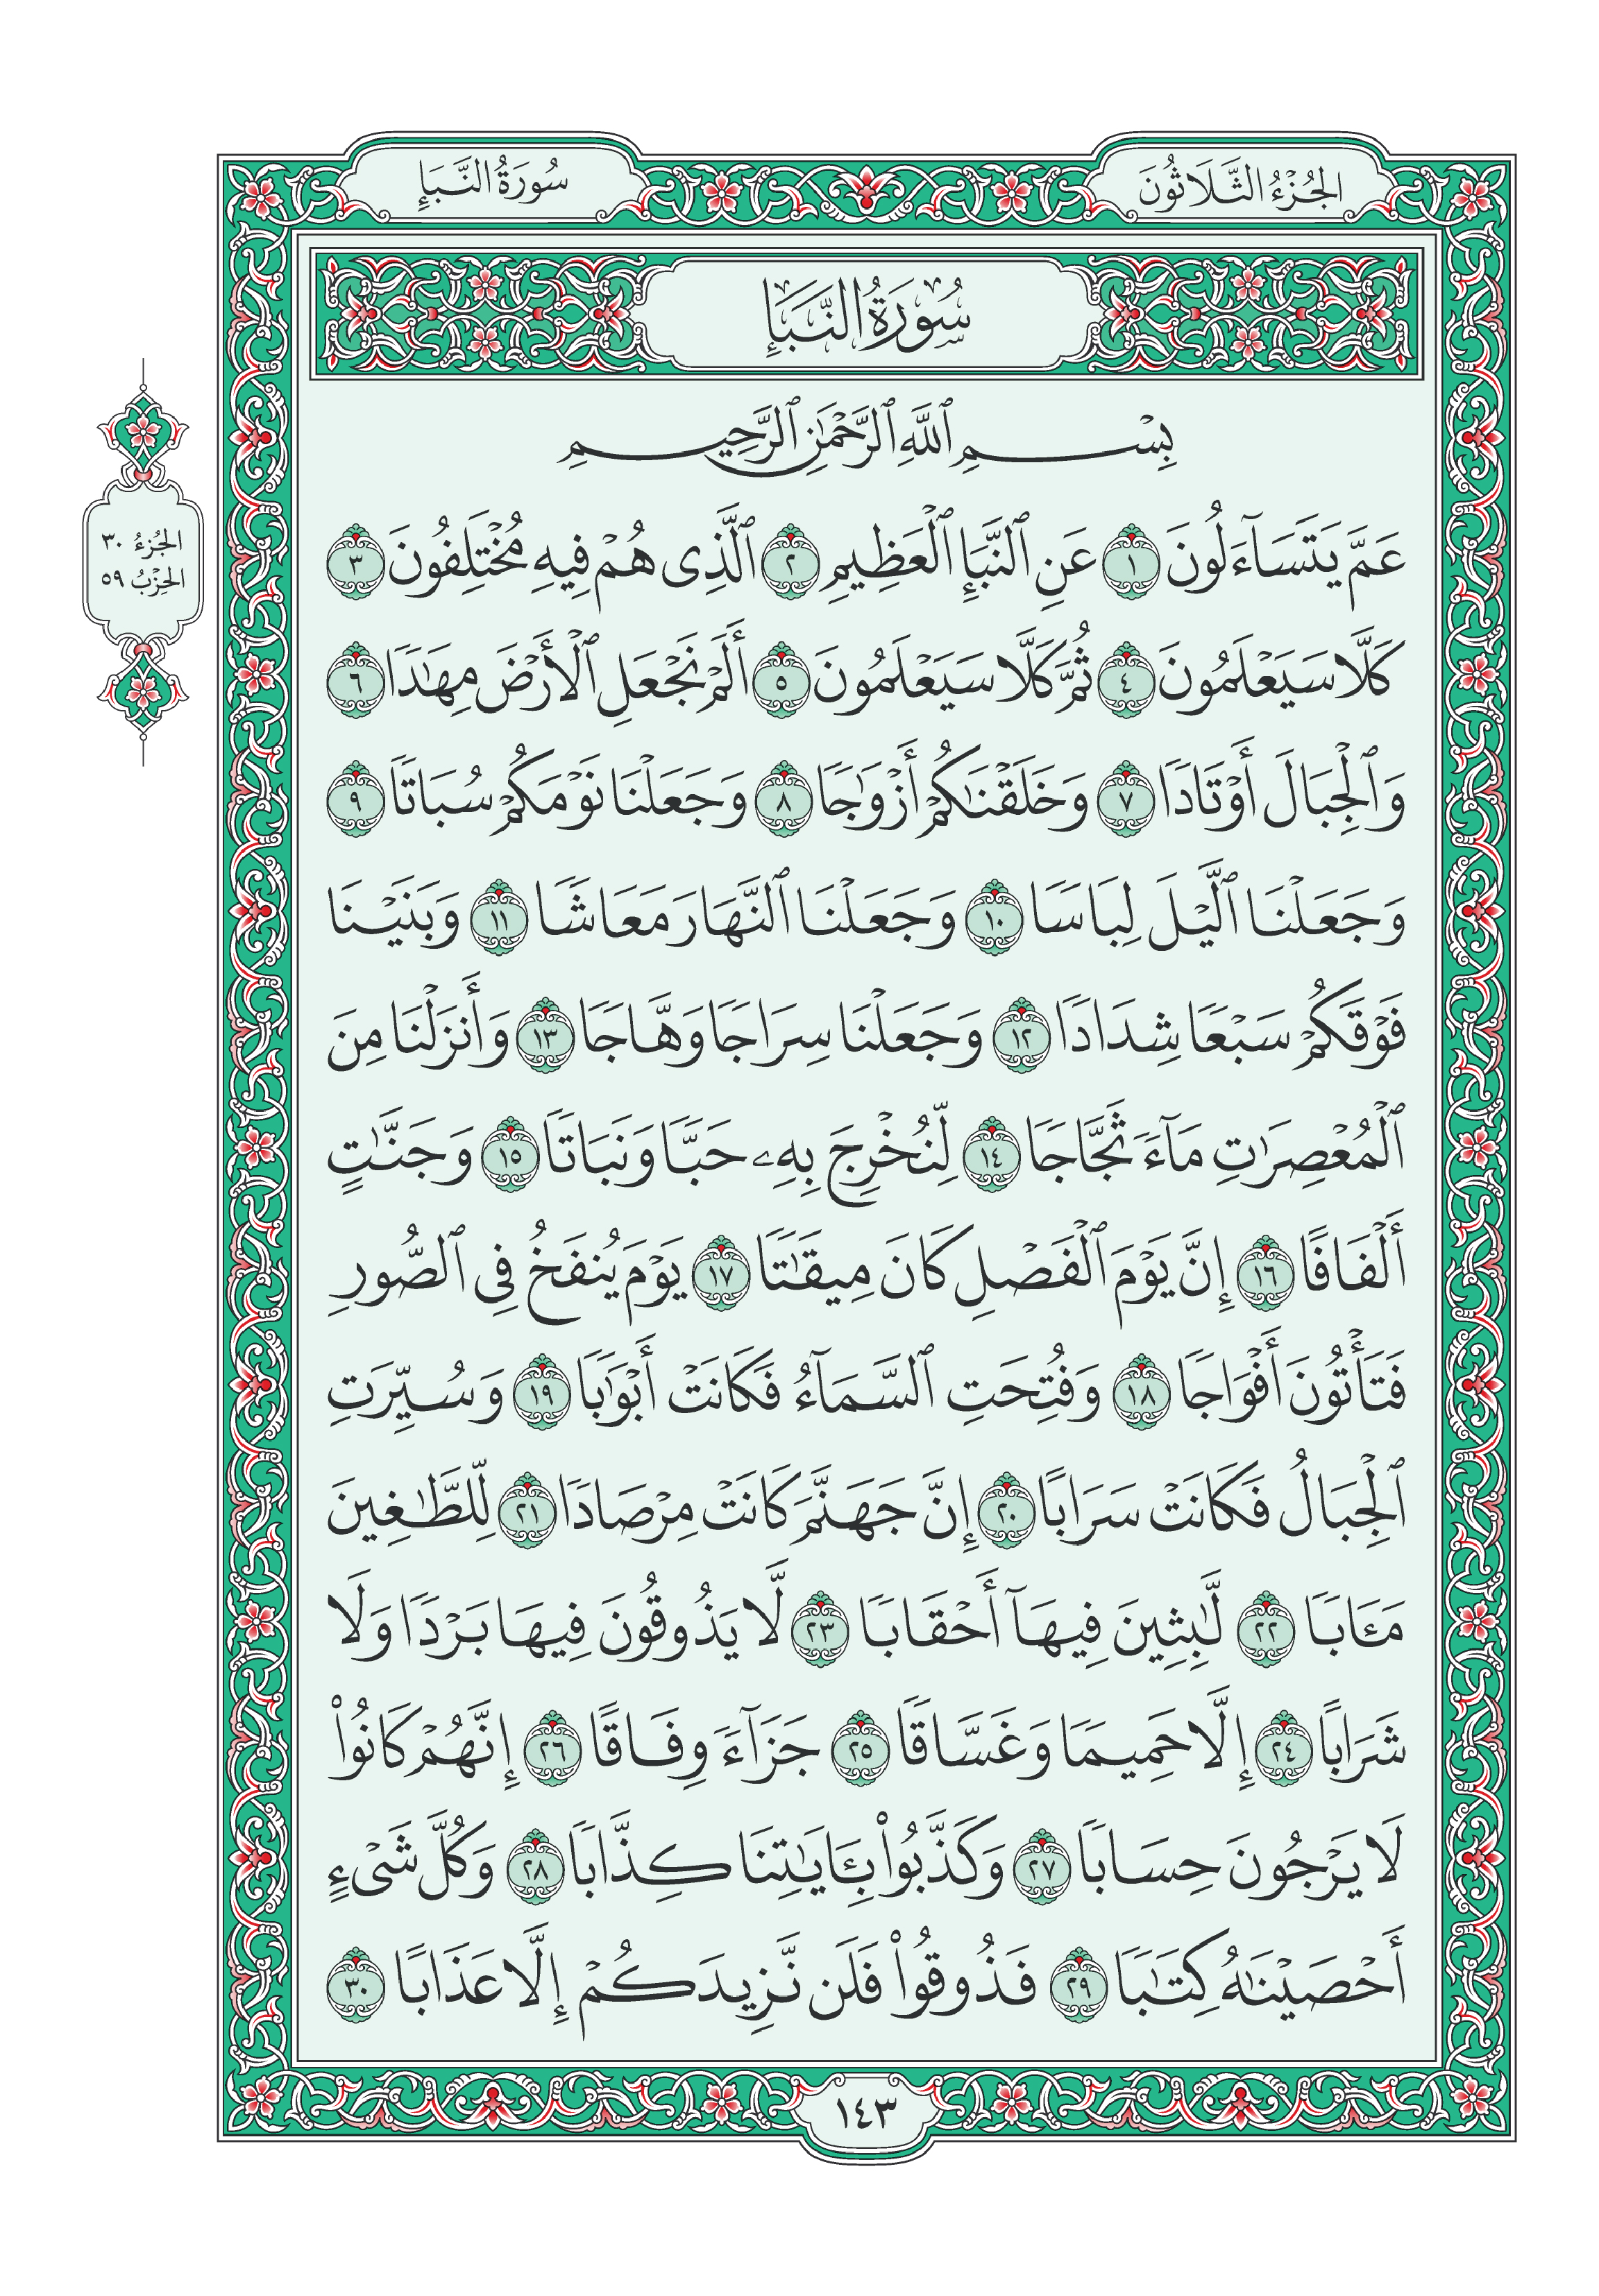 الجُزْءُ الثَّلَاثُونَ
سُورَةُ النَّبَإِ
سُورَةُ النَّبَإِ
بِسْمِ ٱللَّهِ ٱلرَّحْمَٰنِ ٱلرَّحِيمِ
الجُزْءُ ٣٠
الحِزْبُ ٥٩
عَمَّ يَتَسَآءَلُونَ ١ عَنِ ٱلنَّبَإِ ٱلْعَظِيمِ ٢ ٱلَّذِى هُمْ فِيهِ مُخْتَلِفُونَ ٣
كَلَّا سَيَعْلَمُونَ ٤ ثُمَّ كَلَّا سَيَعْلَمُونَ ٥ أَلَمْ نَجْعَلِ ٱلْأَرْضَ مِهَٰدًا ٦
وَٱلْجِبَالَ أَوْتَادًا ٧ وَخَلَقْنَٰكُمْ أَزْوَٰجًا ٨ وَجَعَلْنَا نَوْمَكُمْ سُبَاتًا ٩
وَجَعَلْنَا ٱلَّيْلَ لِبَاسًا ١٠ وَجَعَلْنَا ٱلنَّهَارَ مَعَاشًا ١١ وَبَنَيْنَا
فَوْقَكُمْ سَبْعًا شِدَادًا ١٢ وَجَعَلْنَا سِرَاجًا وَهَّاجًا ١٣ وَأَنزَلْنَا مِنَ
ٱلْمُعْصِرَٰتِ مَآءً ثَجَّاجًا ١٤ لِّنُخْرِجَ بِهِۦ حَبًّا وَنَبَاتًا ١٥ وَجَنَّٰتٍ
أَلْفَافًا ١٦ إِنَّ يَوْمَ ٱلْفَصْلِ كَانَ مِيقَٰتًا ١٧ يَوْمَ يُنفَخُ فِى ٱلصُّورِ
فَتَأْتُونَ أَفْوَاجًا ١٨ وَفُتِحَتِ ٱلسَّمَآءُ فَكَانَتْ أَبْوَٰبًا ١٩ وَسُيِّرَتِ
ٱلْجِبَالُ فَكَانَتْ سَرَابًا ٢٠ إِنَّ جَهَنَّمَ كَانَتْ مِرْصَادًا ٢١ لِّلطَّٰغِينَ
مَـَٔابًا ٢٢ لَّٰبِثِينَ فِيهَآ أَحْقَابًا ٢٣ لَّا يَذُوقُونَ فِيهَا بَرْدًا وَلَا
شَرَابًا ٢٤ إِلَّا حَمِيمًا وَغَسَّاقًا ٢٥ جَزَآءً وِفَاقًا ٢٦ إِنَّهُمْ كَانُوا۟
لَا يَرْجُونَ حِسَابًا ٢٧ وَكَذَّبُوا۟ بِـَٔايَٰتِنَا كِذَّابًا ٢٨ وَكُلَّ شَىْءٍ
أَحْصَيْنَٰهُ كِتَٰبًا ٢٩ فَذُوقُوا۟ فَلَن نَّزِيدَكُمْ إِلَّا عَذَابًا ٣٠
١٤٣